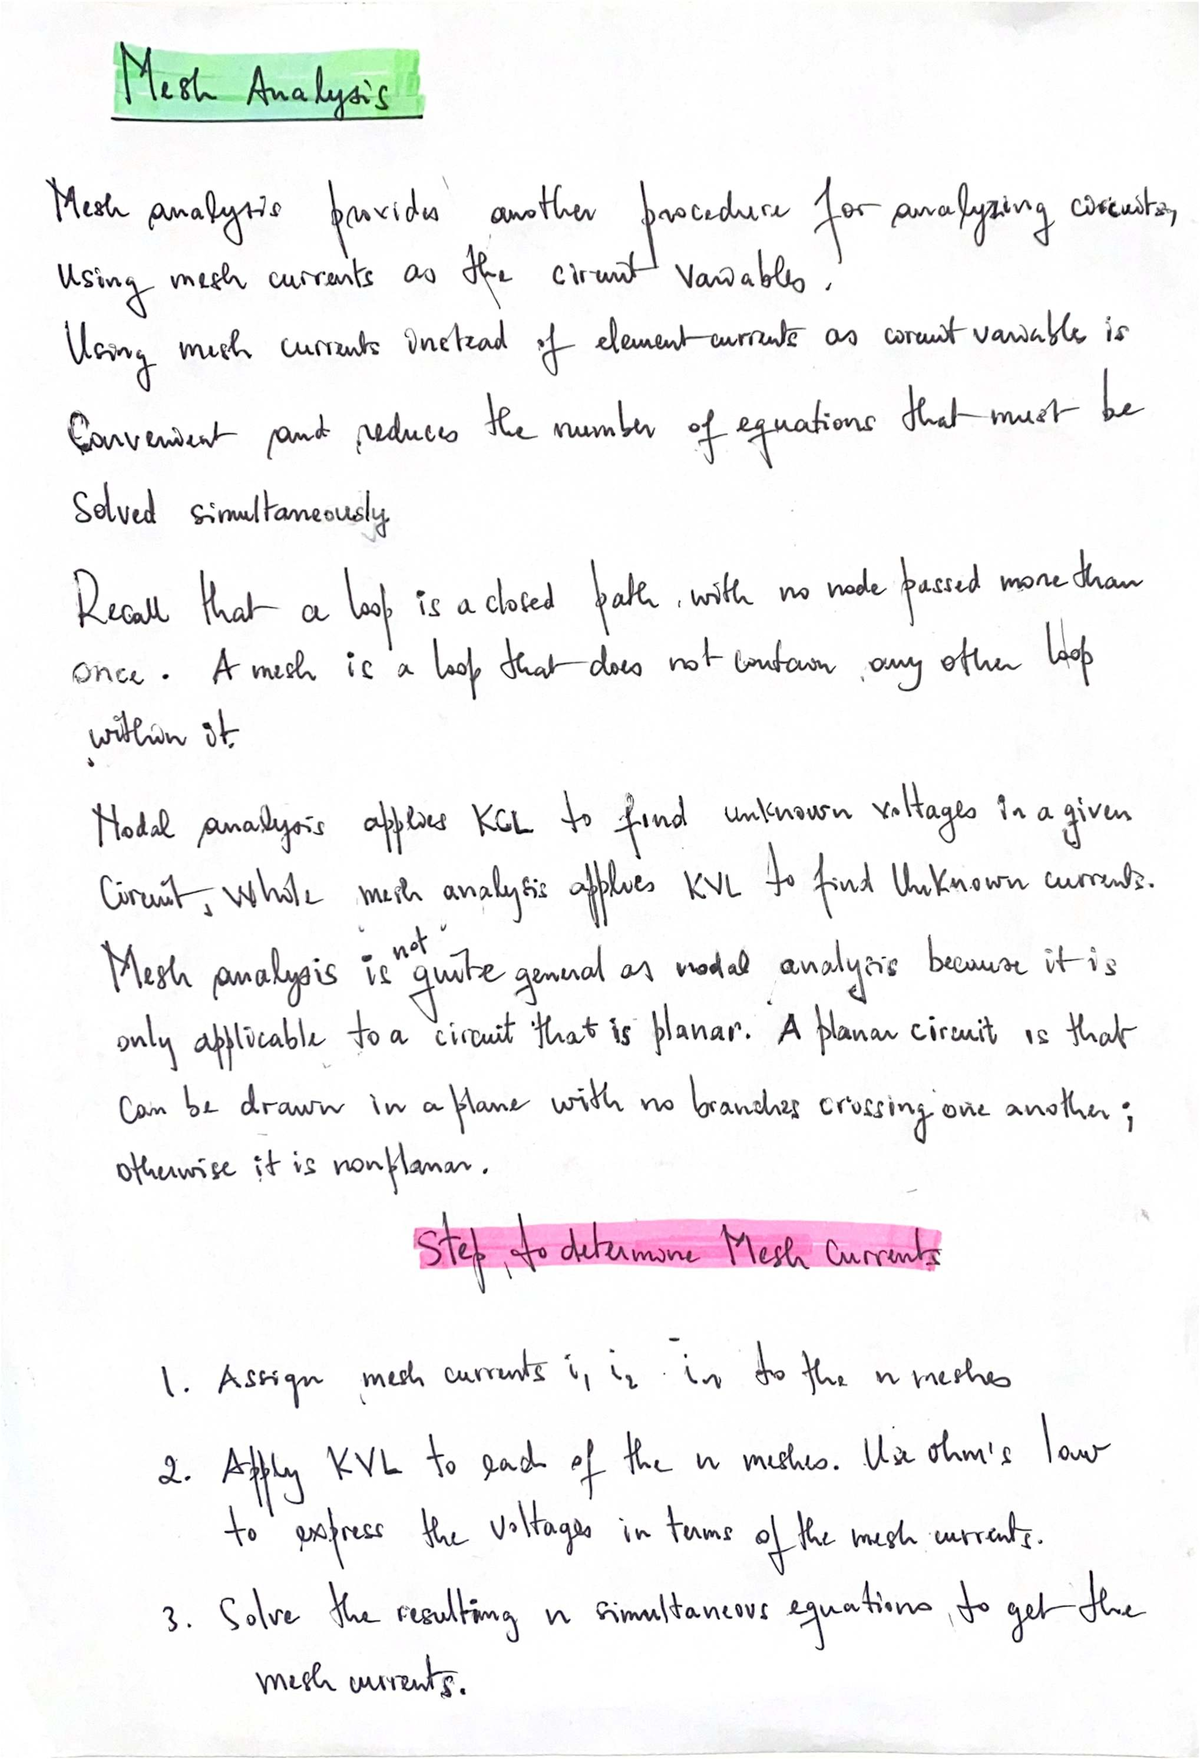 Mesh Analysis
Mesh analysis provides another procedure for analyzing circuits,
Using mesh currents as the circuit variables.
Using mesh currents instead of element currents as circuit variable is
Convenient and reduces the number of equations that must be
Solved simultaneously
Recall that a loop is a closed path, with no node passed more than
once. A mesh is a loop that does not contain any other loop
within it.
Nodal analysis applies KCL to find unknown voltages in a given
Circuit, While mesh analysis applies KVL to find UnKnown currents.
Mesh analysis is not quite general as nodal analysis because it is
only applicable to a circuit that is planar. A planar circuit is that
Can be drawn in a plane with no branches crossing one another;
otherwise it is nonplanar.
Step, to determine Mesh Currents
1. Assign mesh currents i₁ i₂ - iₙ to the n meshes
2. Apply KVL to each of the n meshes. Use ohm's law
to express the voltages in terms of the mesh currents.
3. Solve the resulting n simultaneous equations, to get the
mesh currents.